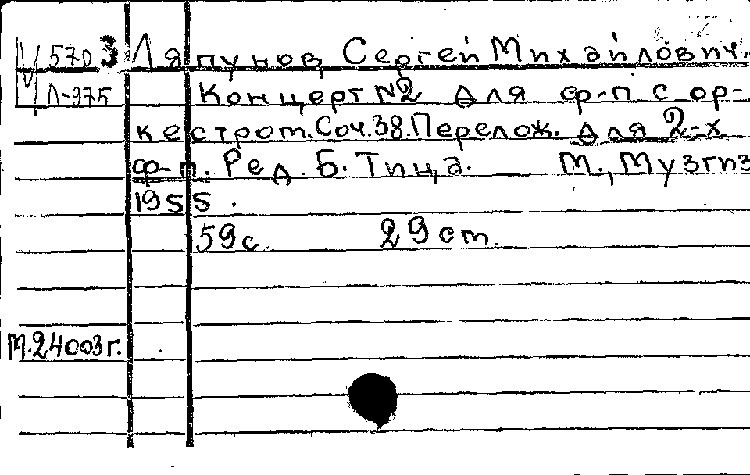 5703 Ляпунов, Сергей Михайлович.
Л-975 Концерт №2 для ф-п с ор-
кестром. Соч. 38. Перелож. для 2-х
ф-п. Ред. Б. Тица. М., Музгиз
1955.
59 с. 29 см.
М.24003г.